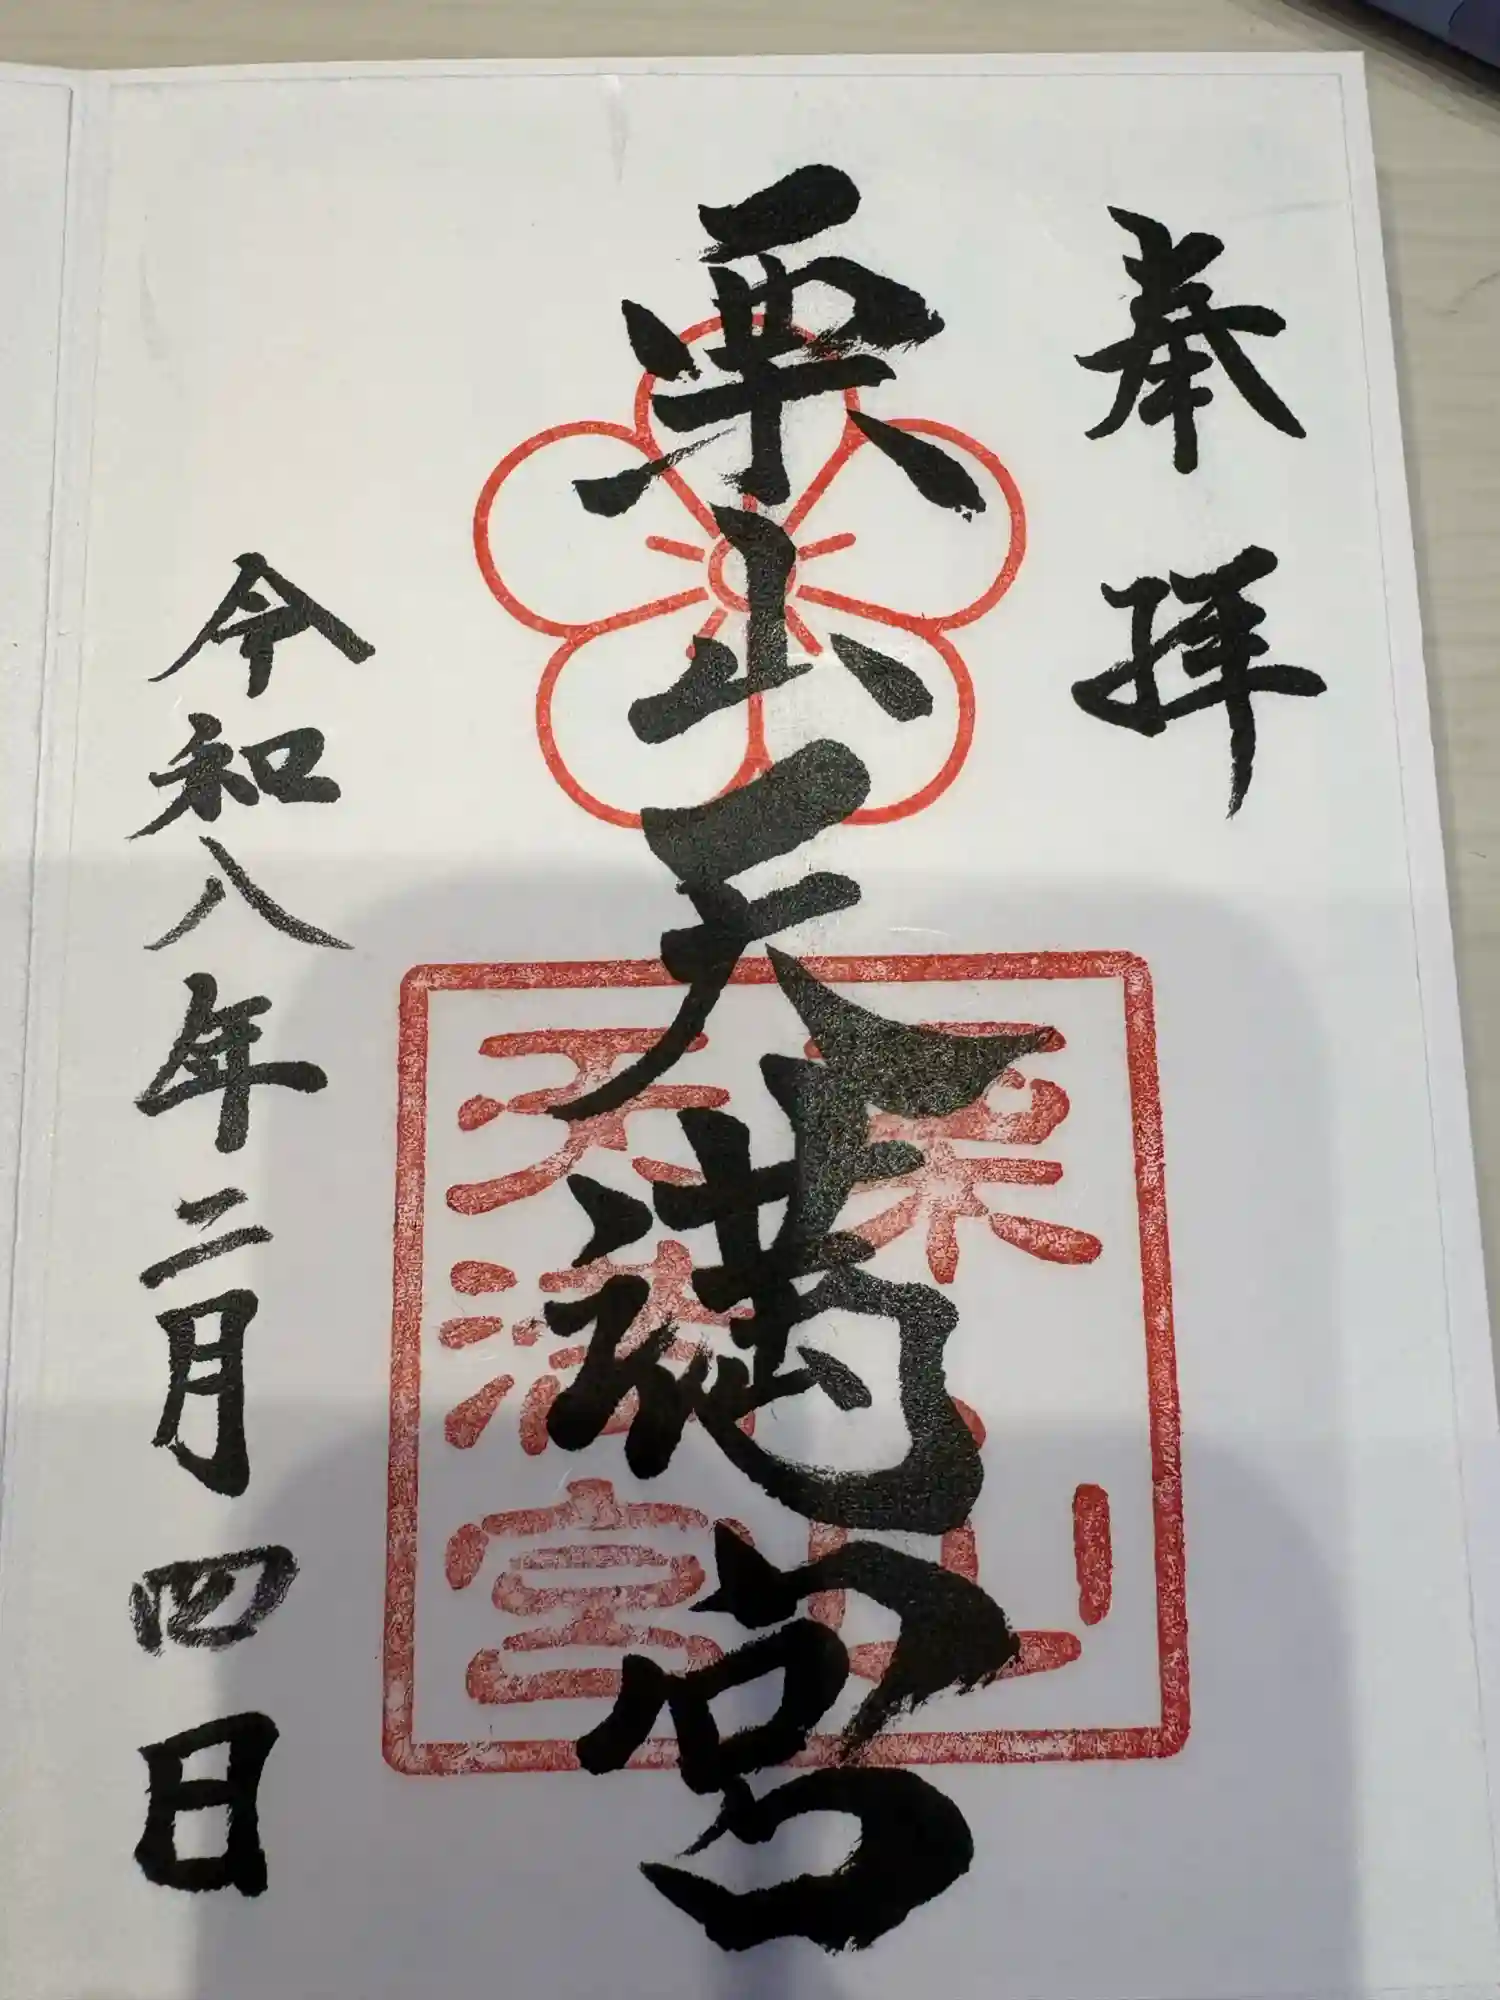 奉拝
栗山天満宮
栗山
天満宮
令和八年二月四日